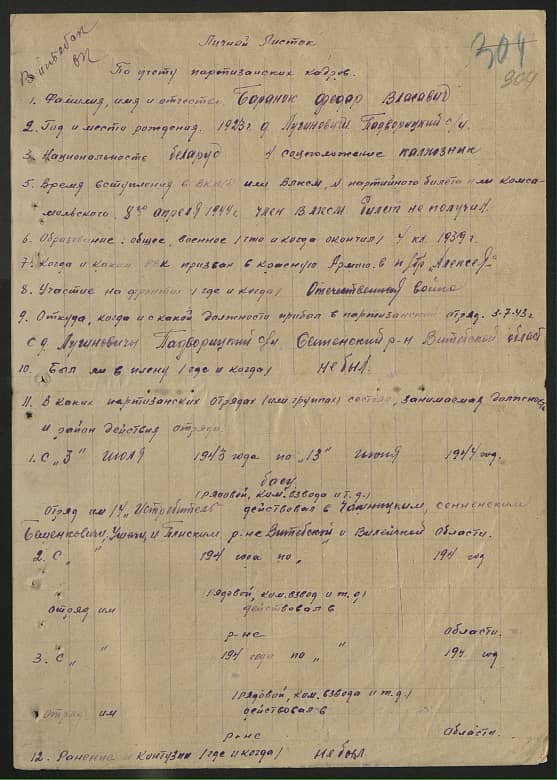 304
304
Личной Листок
По учету партизанских кадров.
1. Фамилия, имя и отчество Баранок Федар Власавич
2. Год и место рождения. 1923 г д. Лугиновичи Падворицкий с/с.
3. Национальность беларус 4 соцположение калхозник
5. Время вступления в ВКП/б/ или Влксм, № партийного билета или комса-
мольского 8го апреля 1944 г. член Влксм билет не получил.
6. Образование: общее, военное /что и когда окончил/ 4 кл. 1939 г.
7. Когда и каким РВК призван в красную Армию. в п/бр „Алексея“
8. Участие на фронтах /где и когда/ Отечественная война
9. Откуда, когда и с какой должности прибыл в партизанский отряд. 3-7-43 г.
с д. Лугиновичи Падворицкий с/с. Сененский р-н Витебской област
10. Был ли в плену /где и когда/ не был.
11. В каких партизанских отрядах /или группах/ состоял, занимаемая должность
и район действия отряда.
1. С „3“ июля 1943 года по „13“ июня 1944 год.
боец
/рядовой, ком. взвода и т.д./
Отряд им 14 „Истребитель действовал в Чашницким, сенненским
Бешенковичи, Ушачи, и Плиским р-не Витебской и Вилейской Области.
2. С „ “ 194 года по „ “ 194 год
/рядовой, ком. взвод и т.д./
отряд им действовал в
р-не Области.
3. С „ “ 194 года по „ “ 194 год
/рядовой, ком. взвода и т.д./
Отряд им действовал в
р-не Области.
12. Ранение и контузии /где и когда/ не был.